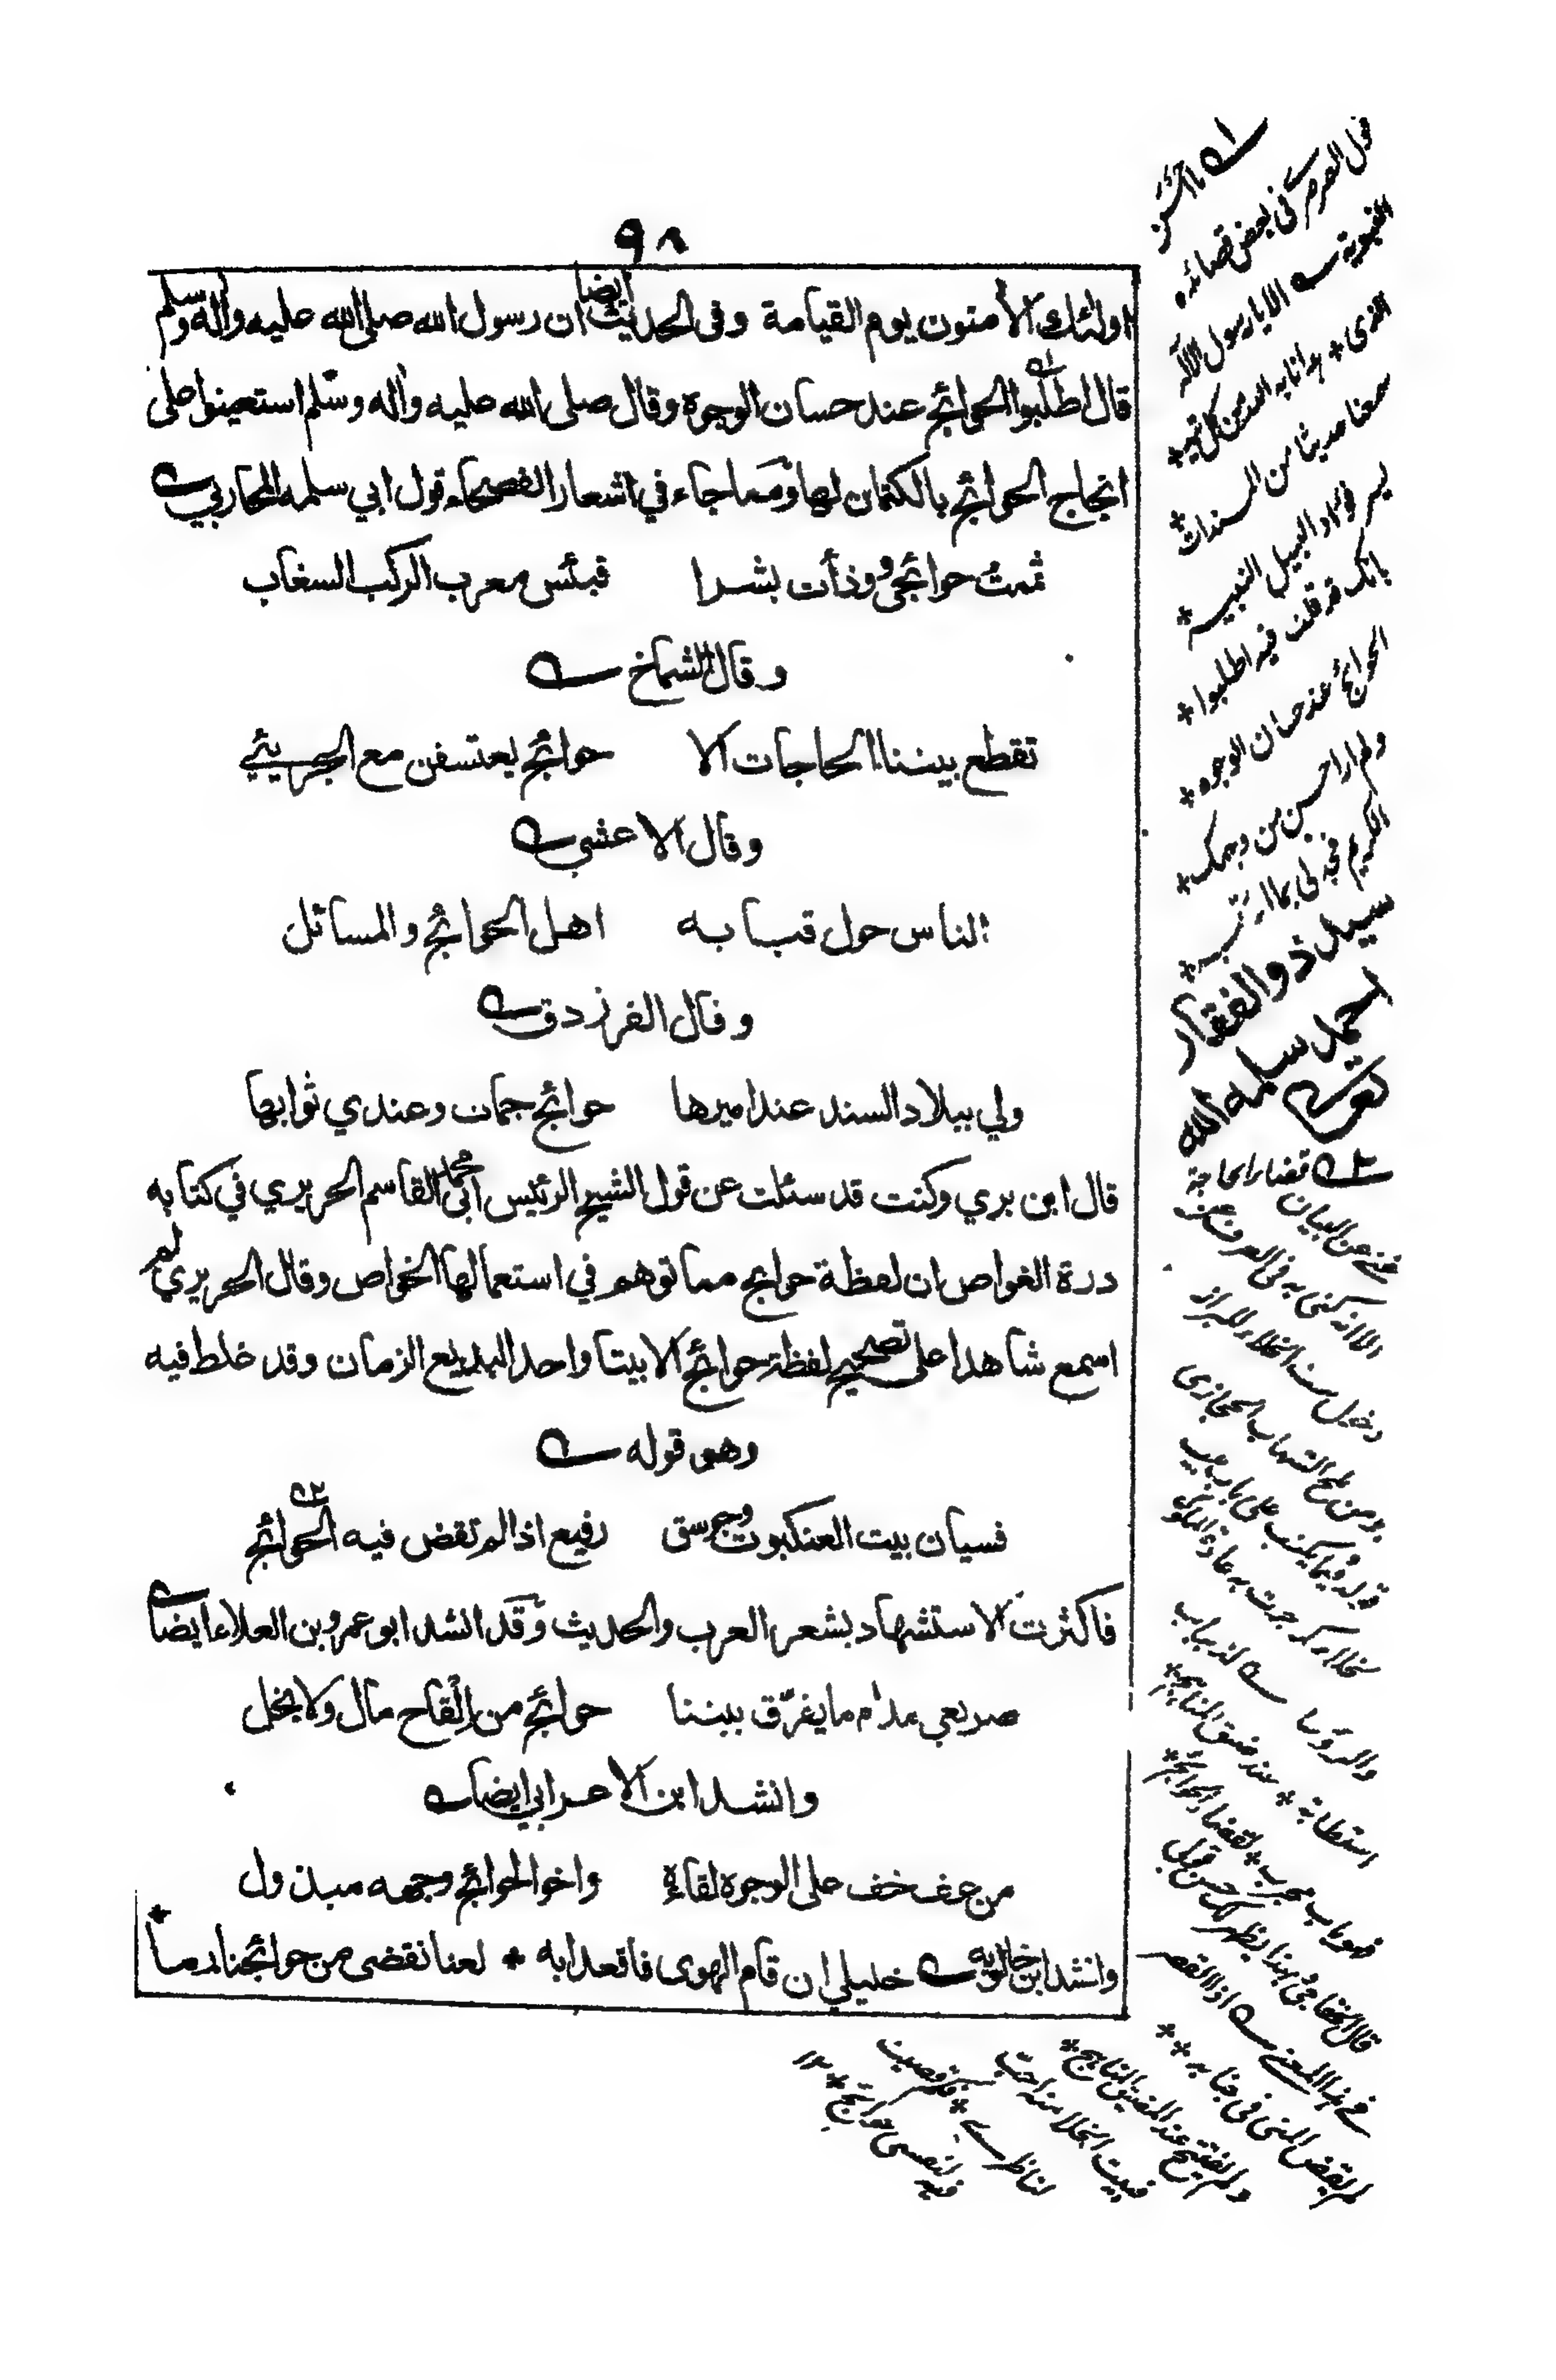 ٩٨
اولئك الآمنون يوم القيامة وفي الحديث ايضا ان رسول الله صلى الله عليه وآله وسلم
قال اطلبوا الحوائج عند حسان الوجوه وقال صلى الله عليه وآله وسلم استعينوا على
انجاح الحوائج بالكتمان لها ومما جاء في اشعار الفصحاء قول ابي سلمة المحاربي
ثممت حوائجي ووذأت بشرا فبئس معرب الركب السغاب
وقال الشماخ
تقطع بيننا الحاجات الا حوائج يعتسفن مع الجريئي
وقال الاعشى
الناس حول قبابه اهل الحوائج والمسائل
وقال الفرزدق
ولي ببلاد السند عند اميرها حوائج جمات وعندي ثوابها
قال ابن بري وكنت قد سئلت عن قول الشيخ الرئيس ابي محمد القاسم الحريري في كتابه
درة الغواص ان لفظة حوايج مما توهم في استعمالها الخواص وقال الحريري لم
اسمع شاهدا على تصحيح لفظة حوائج الا بيتا واحدا لبديع الزمان وقد غلط فيه
وهو قوله
فسيان بيت العنكبوت وجوسق رفيع اذا لم تقض فيه الحوائج
فاكثرت الاستشهاد بشعر العرب والحديث وقد انشد ابو عمرو بن العلاء ايضا
صريعي مدام ما يفرق بيننا حوائج من القاح مال ولا نخل
وانشد ابن الاعرابي ايضا
من عف خف على الوجوه لقاؤه واخو الحوائج وجهه مبذول
وانشد ابن خالويه خليلي ان قام الهوى فاقعدا به * لعنا نقضى من حوائجنا رما
قول العزم في بعض قصائده
النبوية الا يا رسول الاله
الذي * هدانا به الله من كل تيه *
سمعنا حديثا من المسندات *
يسر فؤاد النبيل النبيه *
بانك قد قلت فيه اطلبوا *
الحوائج عند حسان الوجوه *
ولم ار احسن من وجهك *
الكريم فجد لي بما ارتجيه *
سيد ذو الفقار
احمد سلمه الله
قضاء الحاجة
غني عن البيان
الا انه كنى به في العرف عن
دخول بيت الخلاء للبراز
ومن ملح الشهاب الحجازي
قوله فيما يكتب على باب بيت
خلاء كما جرت به عادة الملوك
قال الخفاجي
في هذا المعنى اذا القصر
لم يقض المنى في جنابه **
ولم يفتتح عند المضيق المناهج *
فبيت الخلا منه احب
لناظري *